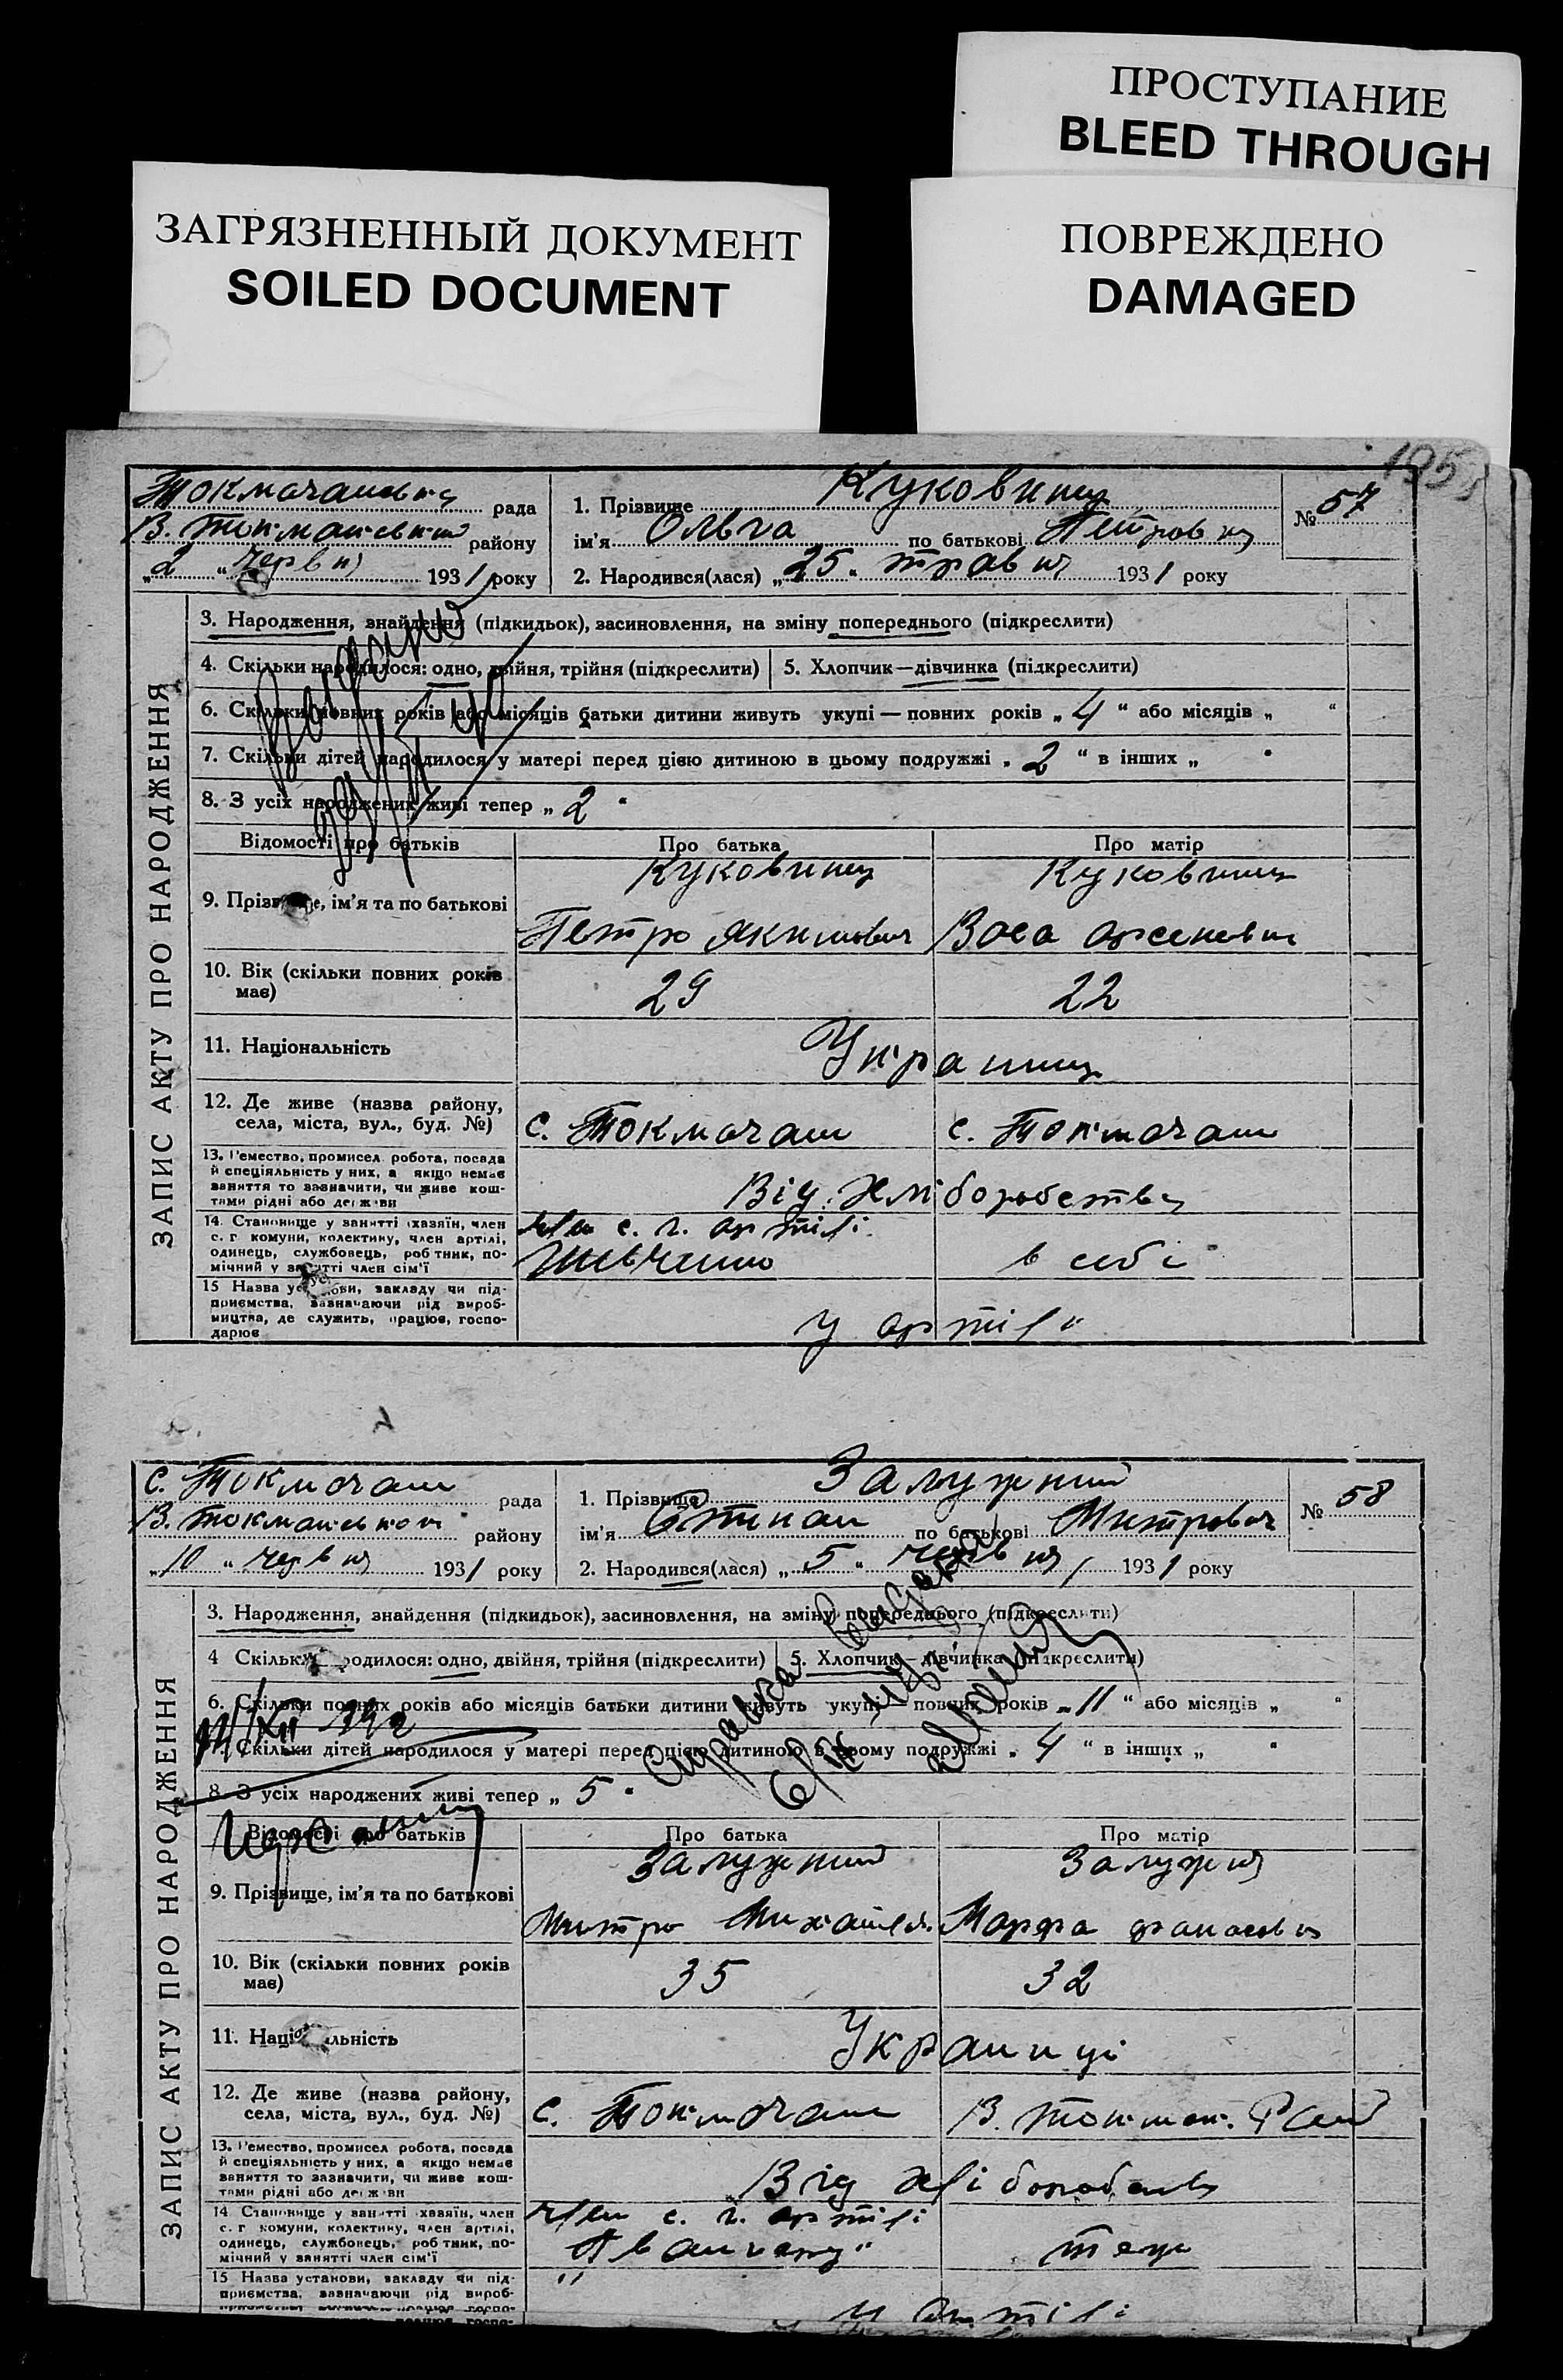 ПРОСТУПАНИЕ
BLEED THROUGH
ЗАГРЯЗНЕННЫЙ ДОКУМЕНТ
SOILED DOCUMENT
ПОВРЕЖДЕНО
DAMAGED
195
рада
В. району
„2“ червня 1931 року
1. Прізвище
ім’я Ольга по батькові Петровна
2. Народився(лася) „25“ травня 1931 року
№ 57
ЗАПИС АКТУ ПРО НАРОДЖЕННЯ
3. Народження, знайдення (підкидьок), засиновлення, на зміну попереднього (підкреслити)
4. Скільки народилося: одно, двійня, трійня (підкреслити)
5. Хлопчик—дівчинка (підкреслити)
6. Скільки повних років або місяців батьки дитини живуть укупі — повних років „4“ або місяців „ “
7. Скільки дітей народилося у матері перед цією дитиною в цьому подружжі „2“ в інших „
8. З усіх народжених живі тепер „2“
Відомості про батьків Про батька Про матір
9. Прізвище, ім’я та по батькові
Петро Якимович
10. Вік (скільки повних років має) 29 22
11. Національність
12. Де живе (назва району, села, міста, вул., буд. №) с. Токмачани с. Токмачани
13. Ремество, промисел, робота, посада
й спеціяльність у них, а якщо немає
заняття то зазначити, чи живе кош-
тами рідні або держави
Від хліборобства
14. Становище у занятті хазяїн, член
с. г. комуни, колективу, член артілі,
одинець, службовець, робітник, по-
мічний у занятті член сім’ї
член с. г. артілі
в себі
15 Назва установи, закладу чи під-
приємства, зазначаючи рід вироб-
ництва, де служить, працює, госпо-
дарює
у артілі
с. Токмачани рада
В. району
„10“ червня 1931 року
1. Прізвище Залужний
ім’я Степан по батькові Митрович
2. Народився(лася) „5“ червня 1931 року
№ 58
ЗАПИС АКТУ ПРО НАРОДЖЕННЯ
3. Народження, знайдення (підкидьок), засиновлення, на зміну попереднього (підкреслити)
4 Скільки народилося: одно, двійня, трійня (підкреслити)
5. Хлопчик—дівчинка (підкреслити)
6. Скільки повних років або місяців батьки дитини живуть укупі — повних років „11“ або місяців „ “
7. Скільки дітей народилося у матері перед цією дитиною в цьому подружжі „4“ в інших „ “
8. З усіх народжених живі тепер „5“
Справка
Відомості про батьків Про батька Про матір
9. Прізвище, ім’я та по батькові Залужний Залужня
Митро Марфа
10. Вік (скільки повних років має) 35 32
11. Національність Українці
12. Де живе (назва району, села, міста, вул., буд. №) с. Токмачани
13. Ремество, промисел робота, посада
й спеціяльність у них, а якщо немає
заняття то зазначити, чи живе кош-
тами рідні або держави
Від
14 Становище у занятті хазяїн, член
с. г комуни, колективу, член артілі,
одинець, службовець, робітник, по-
мічний у занятті член сім’ї
член с. г. артілі
теж
15 Назва установи, закладу чи під-
приємства, зазначаючи рід вироб-
у артілі